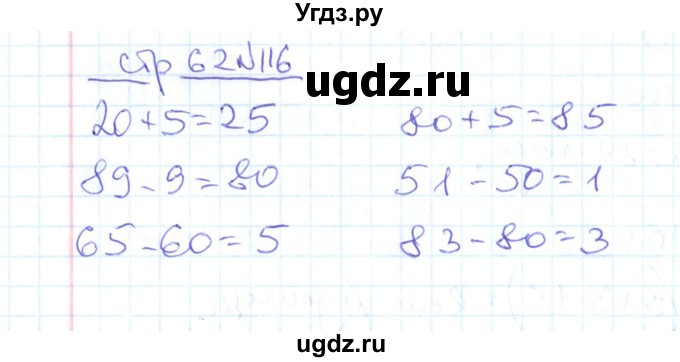 Угдз.ру
стр 62 №116
ugdz.ru
20+5=25 80+5=85
89-9=80 51-50=1
65-60=5 83-80=3
Угдз.ру
ugdz.ru